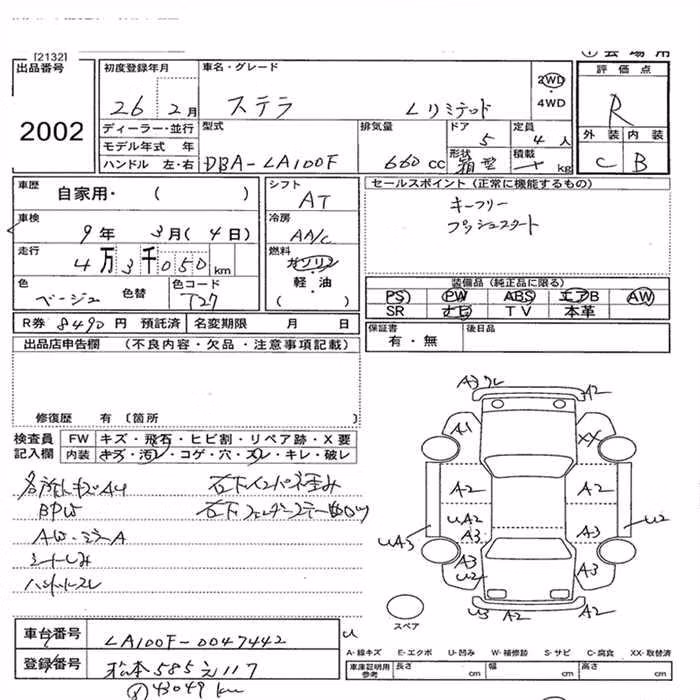 [2132]
出品番号
2002
初度登録年月
26 2月
ディーラー・並行
モデル年式 年
ハンドル 左・右
車名・グレード
ステラ Lリミテッド
2WD
・
4WD
型式
DBA-LA100F
排気量
660 cc
ドア
5
形状
箱型
定員
4人
積載
kg
会場用
評価点
R
外装 内装
C B
車歴
自家用・( )
車検
9年 3月(4日)
走行
4万3千050km
色
ベージュ
色替
色コード
T27
シフト
AT
冷房
AA/C
燃料
ガソリン
軽・油
( )
セールスポイント(正常に機能するもの)
キーフリー
プッシュスタート
装備品(純正品に限る)
PS PW ABS エアB AW
SR ナビ TV 本革
R券 8490円 預託済 名変期限 月 日
保証書
有・無
後日品
出品店申告欄 (不良内容・欠品・注意事項記載)
修復歴 有〔箇所 〕
検査員
記入欄
FW キズ・飛石・ヒビ割・リペア跡・X要
内装 キズ・汚レ・コゲ・穴・スレ・キレ・破レ
各所キズAU
BPW
AW・ミラーA
シートしみ
ハンドルスレ
右下インパネ歪み
A2
A1
XX
A2
A2
UA2
A3
A3
UA3
U2
A3
U2
A3
U3
A2
A2
スペア
車台番号
LA100F-0047442
登録番号
松本585え117
43049 km
A-線キズ E-エクボ U-凹み W-補修跡 S-サビ C-腐食 XX-取替済
車庫証明用
参考
長さ cm 幅 cm 高さ cm